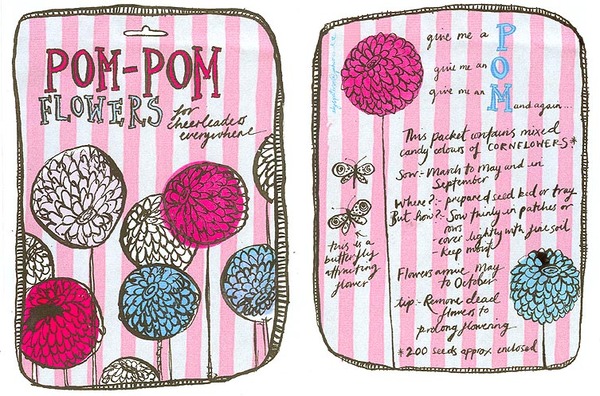 POM-POM
FLOWERS for
cheerleaders
everywhere
give me a P
give me an O
give me an M and again...
This packet contains mixed
candy colours of CORNFLOWERS*
Sow:- March to May and in
September
Where?:- prepared seed bed or tray
But how?:- Sow thinly in patches or
rows
cover lightly with fine soil
Keep moist
this is a
butterfly
attracting
flower
Flowers arrive May
to October
tip:- Remove dead
flowers to
prolong flowering
*200 seeds approx enclosed